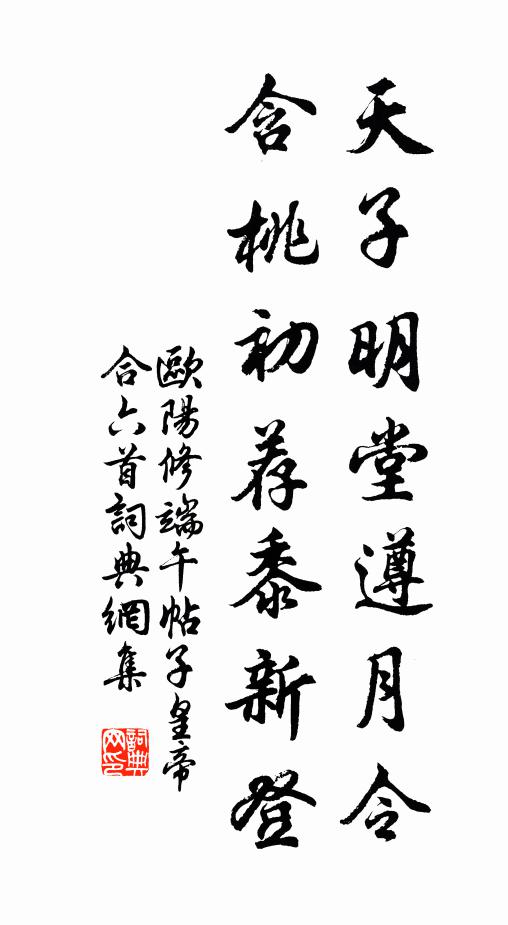 天子明堂遵月令
含桃初荐黍新登
歐陽修端午帖子皇帝
合六首詞典網集
詞典网印